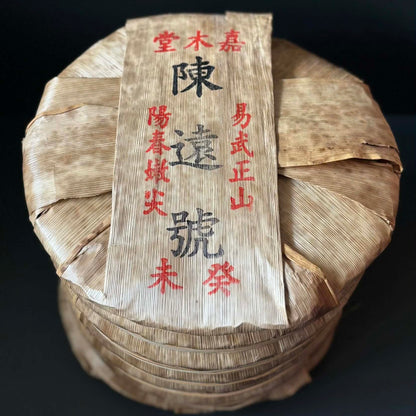 嘉木堂
易武正山
陳遠號
陽春嫩尖
癸未